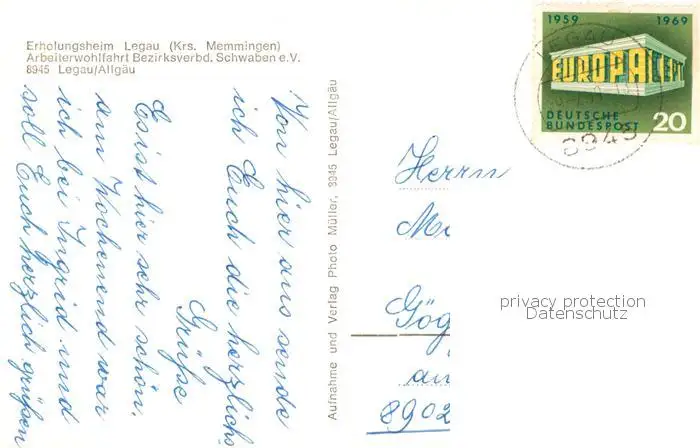 Erholungsheim Legau (Krs. Memmingen)
Arbeiterwohlfahrt Bezirksverbd. Schwaben e.V.
8945 Legau/Allgäu
Von hier aus sende
ich Euch die herzlichs
Grüße
Es ist hier sehr schön,
am Wochenend war
ich bei Ingrid und
soll Euch herzlich grüßen
Aufnahme und Verlag Photo Müller, 8945 Legau/Allgäu
1959 1969
EUROPA CEPT
DEUTSCHE
BUNDESPOST 20
LEGAU
8945
Herrn
Gög
8902
privacy protection
Datenschutz